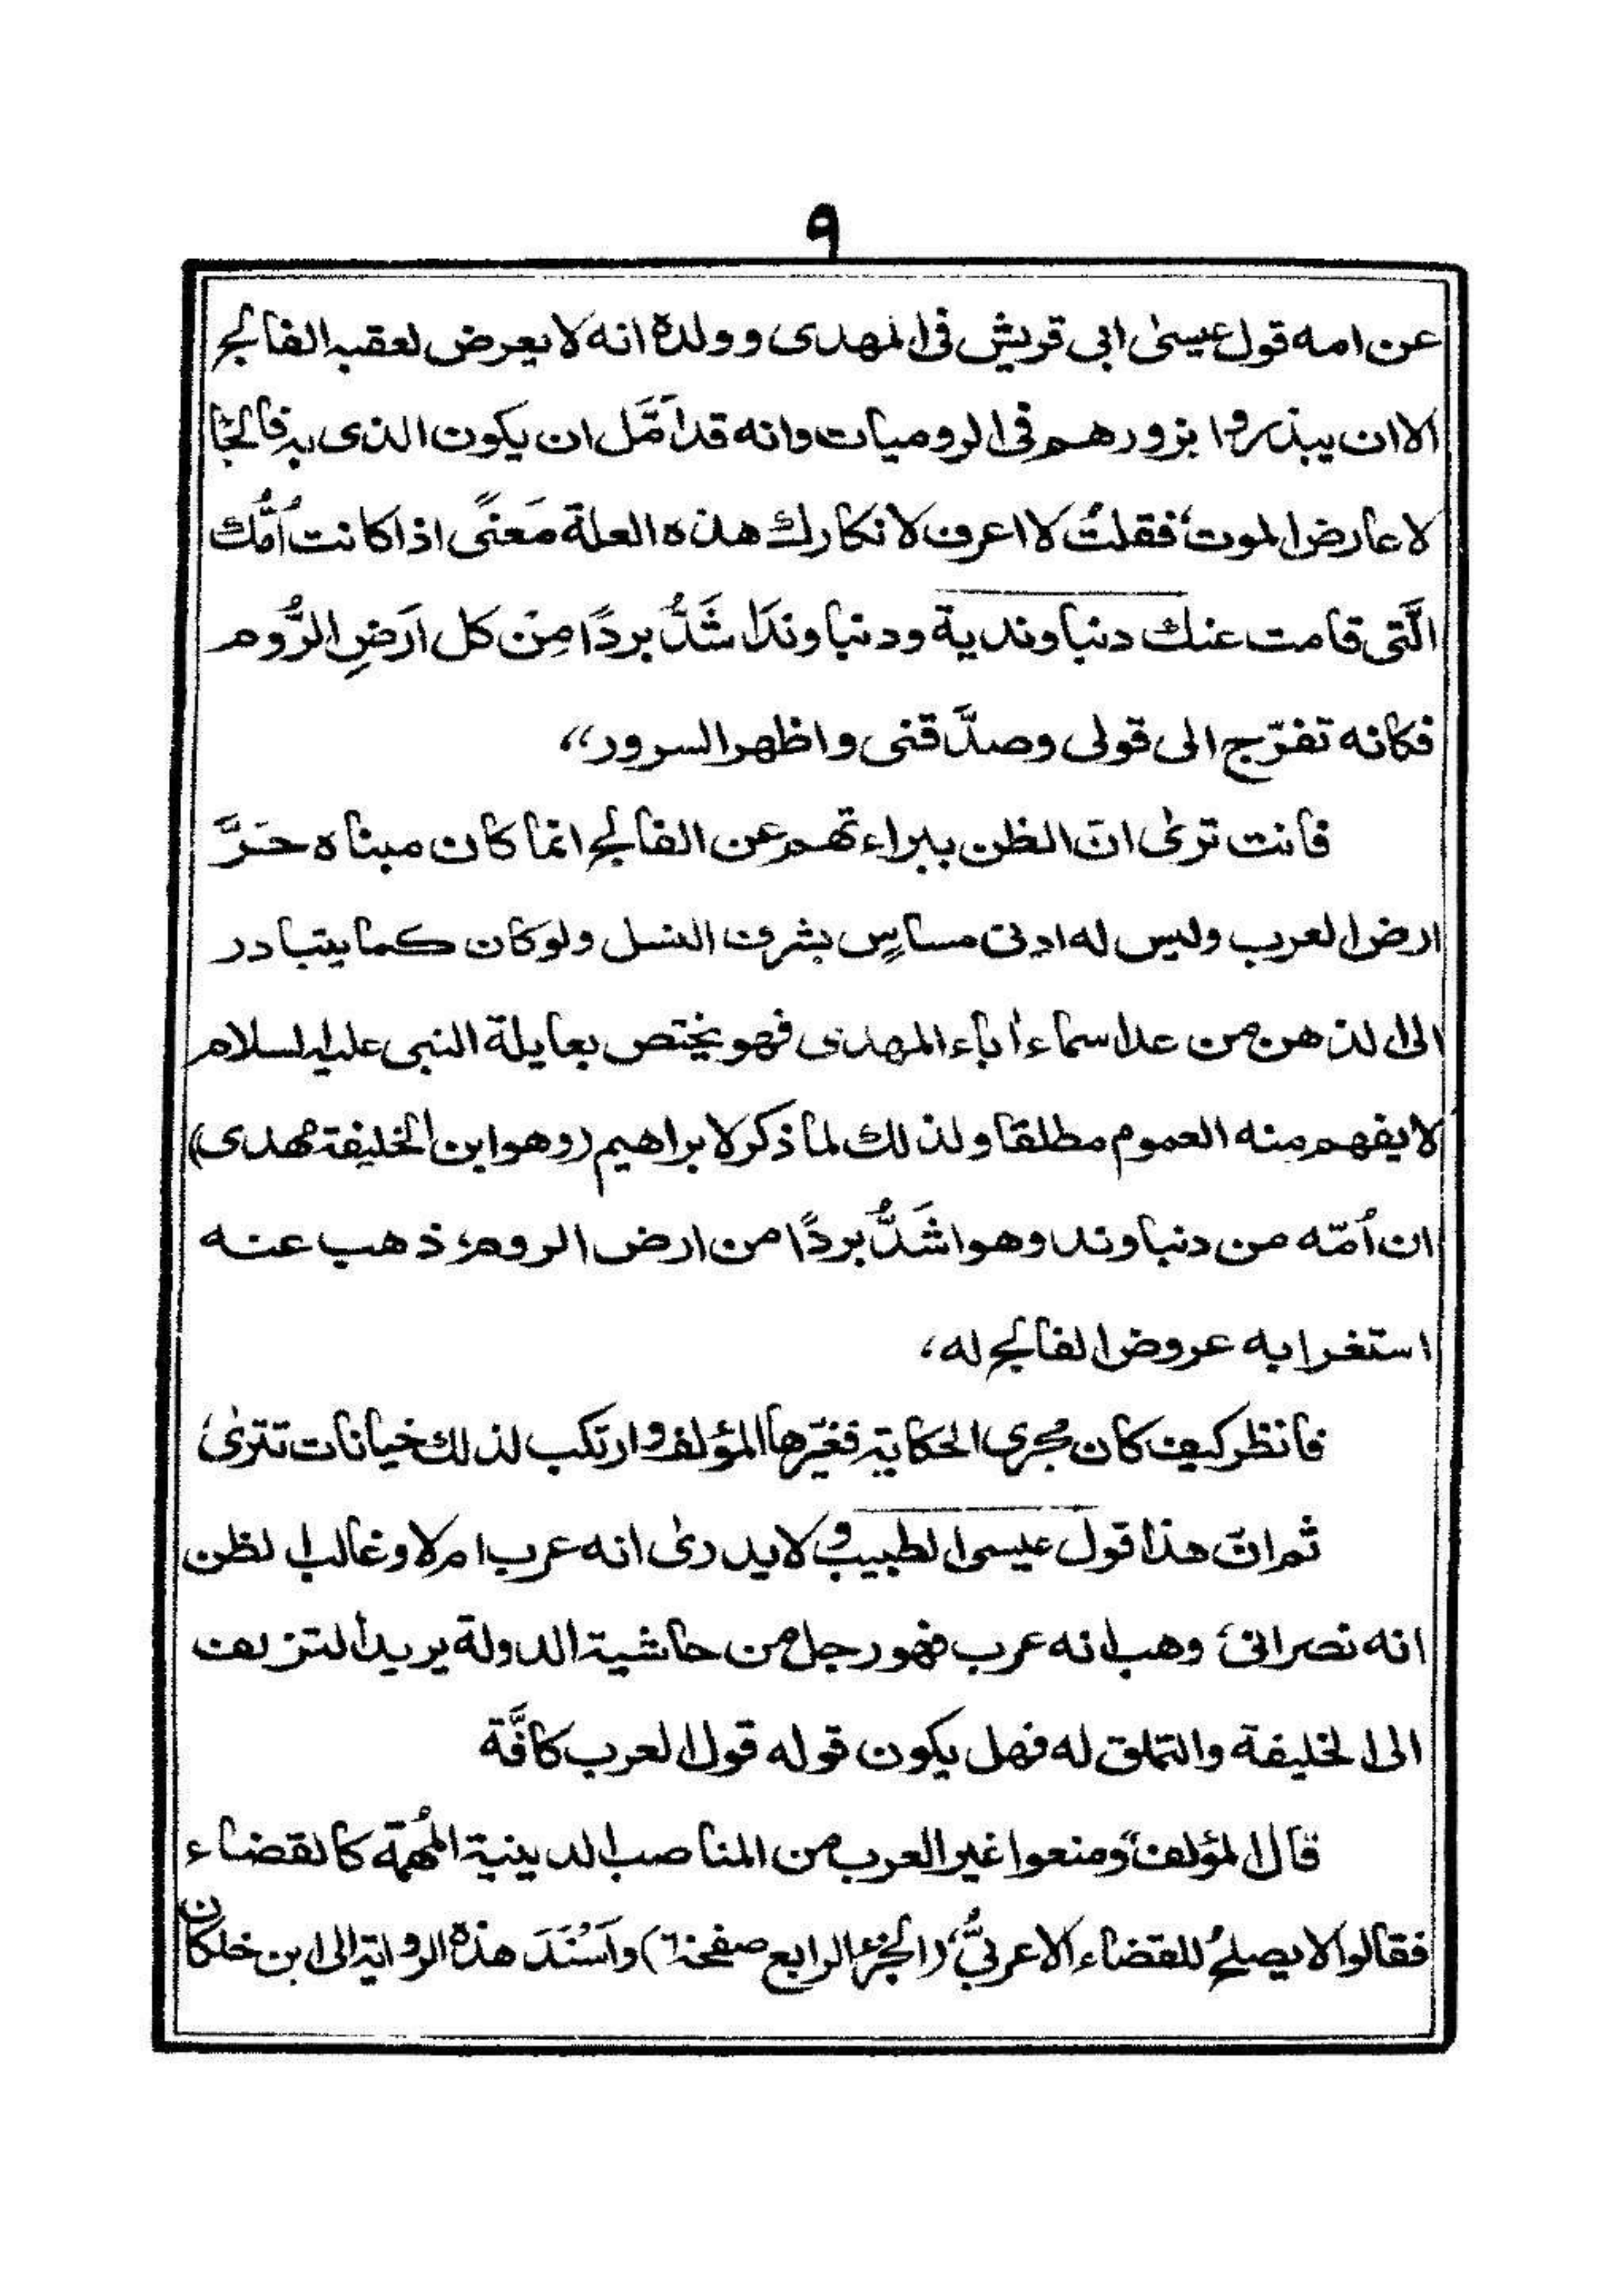 ٩
عن امه قول عيسىٰ ابى قريش فى المهدى وولدة انه لا يعرض لعقبه الفالج
الا ان يبذروا بزورهم فى الروميات وانه قد أمَّل ان يكون الذى به فالجًا
لا عارض الموت، فقلتُ لا اعرف لانكارك هذه العلة مَعنًى اذا كانت أمُّك
الَّتى قامت عنك دنباوندية ودنباوند اَشَدُّ بردًا مِنْ كل اَرَضِ الرُّوم
فكانه تفرّج الى قولى وصدَّقنى واظهر السرور،،
فانت ترىٰ انّ الظن ببراءتهم عن الفالج انما كان مبناه حَرَّ
ارض العرب وليس له ادنى مساسٍ بشرف النسل ولو كان كما يتبادر
الى الذهن من عد اسماء أباء المهدى فهو يختص بعايلة النبى عليه السلام
لا يفهم منه العموم مطلقا ولذلك لما ذكر لابراهيم (وهو ابن الخليفة مهدى)
ان اُمّه من دنباوند وهو اشَدُّ بردًا من ارض الروم، ذهب عنه
استغرابه عروض الفالج له،
فانظر كيف كان مجرى الحكاية فغيّرها المؤلف وارتكب لذلك خيانات تترىٰ،
ثم انّ هذا قول عيسى الطبيب ولا يدرىٰ انه عرب ام لا وغالب الظن
انه نصرانىّ، وهب انه عرب فهو رجل من حاشية الدولة يريد التزلف
الى الخليفة والتملق له فهل يكون قوله قول العرب كافَّة
قال المؤلف "ومنعوا غير العرب من المناصب الدينية المُهِمّة كالقضاء
فقالوا لا يصلحُ للقضاء الا عربىُّ" (الجزء الرابع صفحة ٦) واَسْنَدَ هذة الرواية الى ابن خلكان